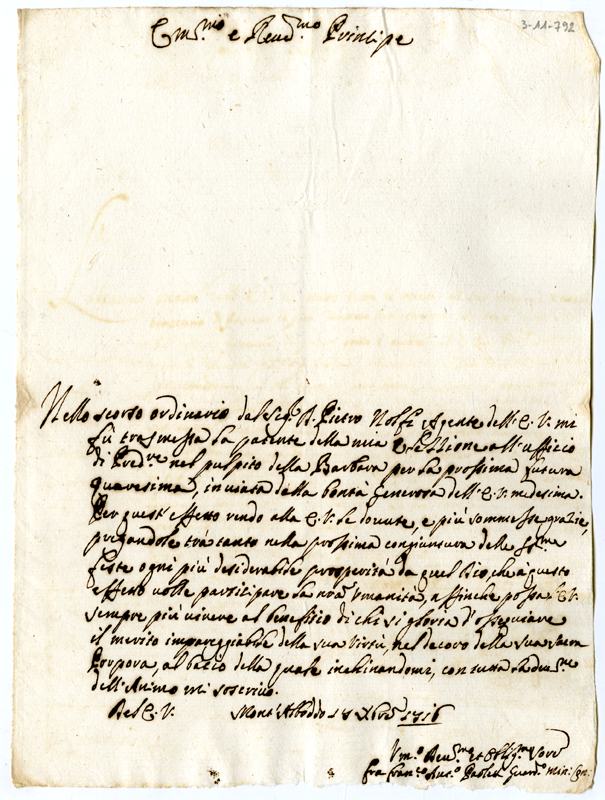 3-11-792
Em.mo e Reud.mo Principe
Nello scorso ordinario dal Sig.r Pietro Nolfi Agente dell'E. V. mi
fù trasmessa la patente della mia Elezzione all'uffizio
di Pred.re nel pulpito della Barbara per la prossima futura
quaresima, inuiata dalla bontà Generosa dell'E. V. medesima.
Per quest'effetto rendo alla E. V. le douute, e più sommesse grazie,
pregandole trà tanto nella prossima congiuntura delle SS.me
feste ogni più desiderabile prosperità da quel Dio, che a questo
effetto uolle participare la nr̃a Vmanità, affinche possa l'E. V.
sempre più uiuere al benefitio di chi si gloria d'ossequiare
il merito impareggiabile della sua Virtù, nel decoro della sua Sacra
Porpora, al bacio della quale inchinandomi, con tutta la
dell'Animo mi soscriuo.
Del E. V. Mont'Alboddo 18 Xbre 1716
Vm.o Deu.mo et Obblig.mo Seru.
fra Fran.co Ant.o Guard.o Min: Con: